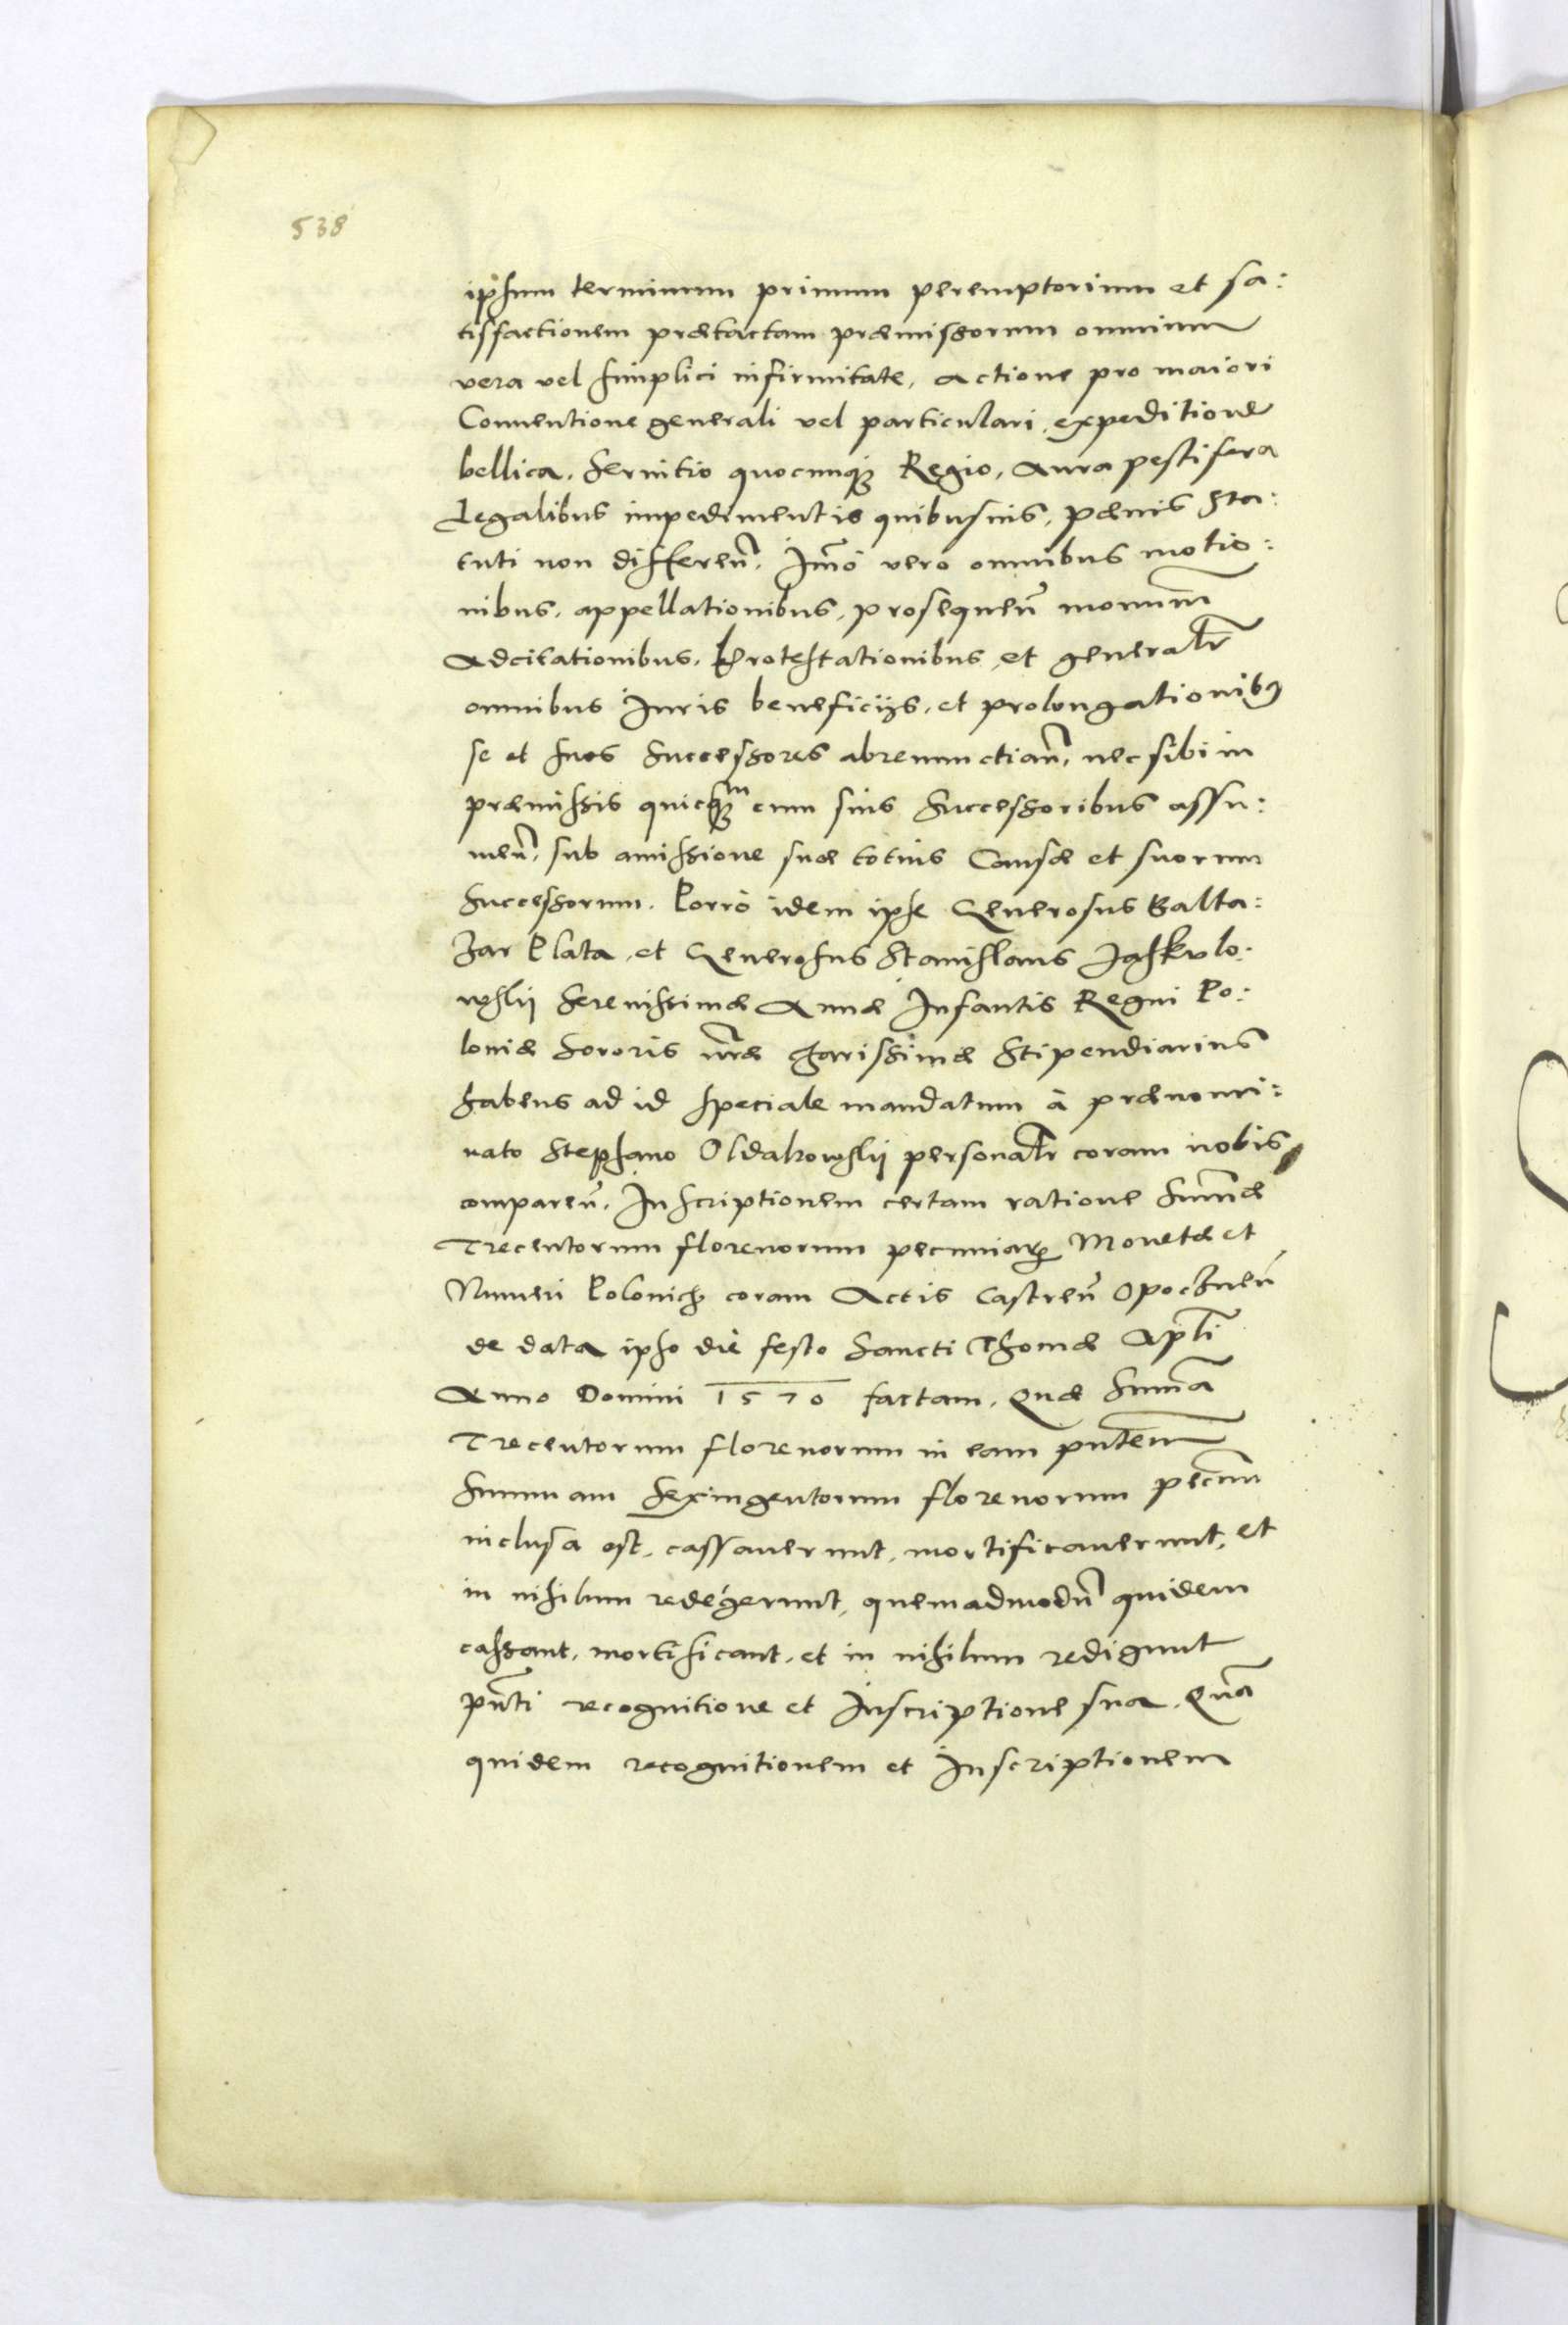 538
ipsum terminum primum peremptorium et sa:
tisfactionem prætactam præmissorum omnium
vera vel simplici infirmitate, actione pro maiori
Conuentione generali vel particulari, expeditione
bellica, seruitio quocunq3 Regio, Aura pestifera
Legalibus impedimentis quibusuis, pænis sta:
tuti non differeñ. Im̃o vero omnibus motio:
nibus, appellationibus, prosequeñ monum̃
Adcitationibus, Protestationibus, et generalr̃
omnibus Iuris beneficijs, et prolongationib9
se et suos successores abrenunctiañ, nec sibi in
præmissis quicq3m cum suis Successoribus assu:
meñ, sub amissione suæ totius Causæ et suorum
Successorum. Porrò idem ipse Generosus Balta:
zar Plata, et Generosus Stanislaus Jaskulo:
wskij Serenissimæ Annæ Infantis Regni Po:
loniæ Sororis nr̃æ charissimæ Stipendiarius
habens ad id speciale mandatum à prænomi:
nato Stephano Oldakowskij personalr̃ coram nobis
compareñ, Inscriptionem certam ratione sum̃æ
Trecentorum florenorum pecuniarꝫ Monetæ et
Numeri Polonich coram Actis Castreñ Opoczneñ
de data ipso die festo Sancti Thomæ Apl̃i
Anno Domini 1570 factam. Quæ sum̃a
Trecentorum florenorum in eam pñtem
summam sexingentorum florenorum pecun̄
inclusa est, cassauerunt, mortificauerunt, et
in nihilum redegerunt, quemadmodũ quidem
cassant, mortificant, et in nihilum redigunt
pñti recognitione et Inscriptione sua. Quã
quidem recognitionem et Inscriptionem